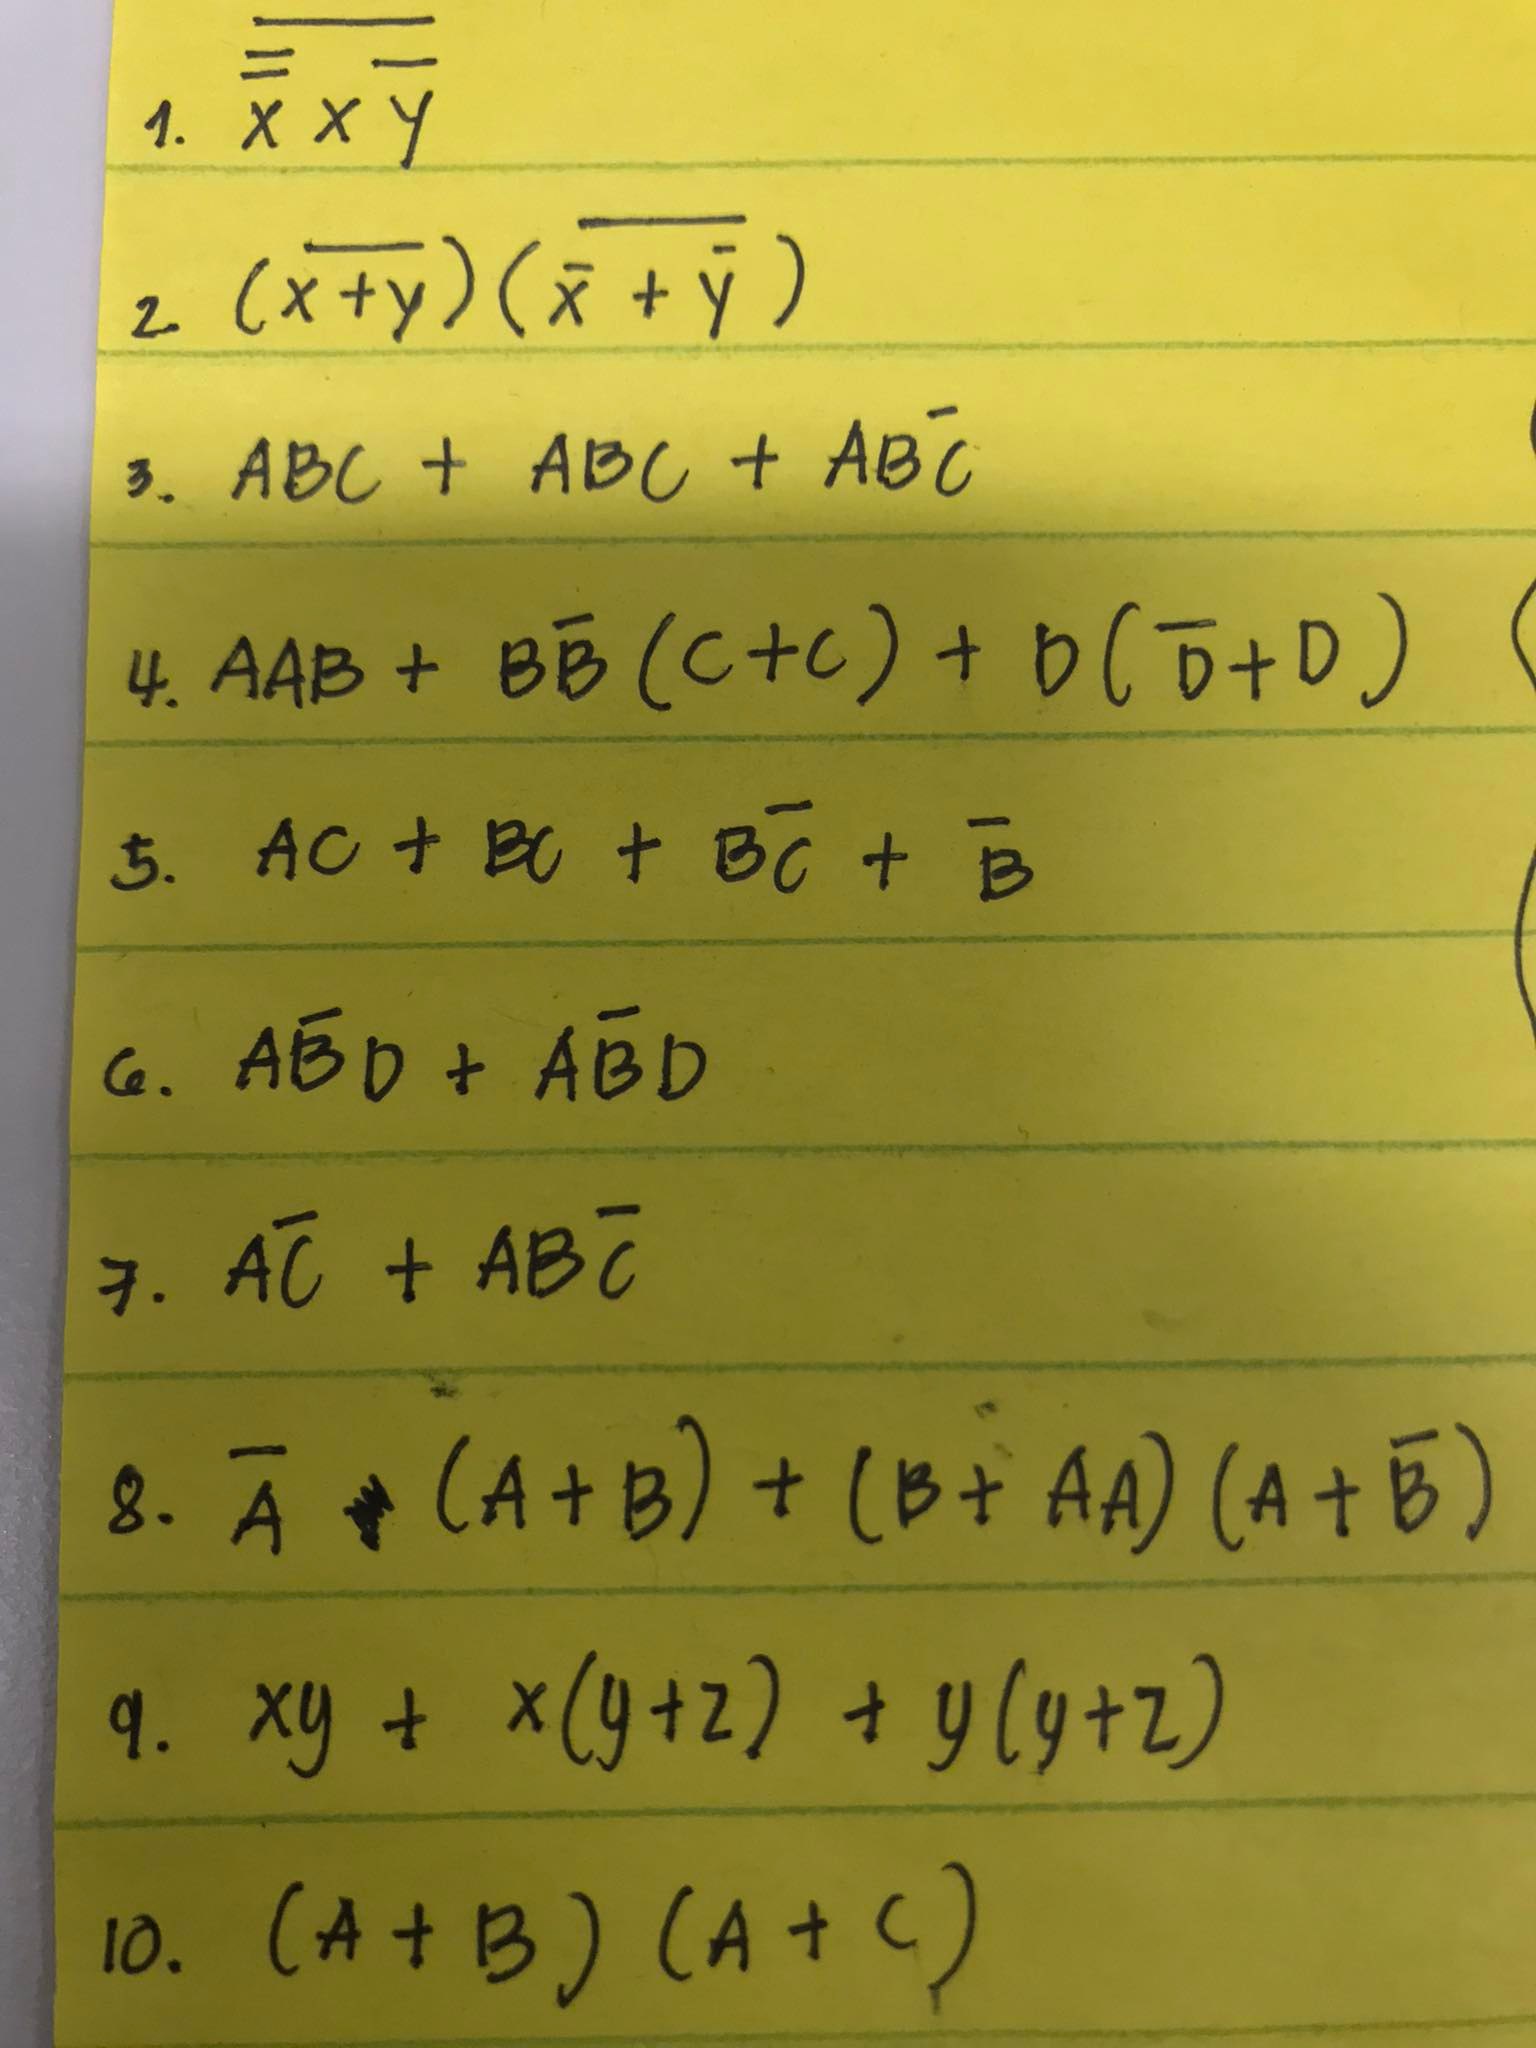 1. $\overline{\overline{\overline{x}} x \overline{y}}$
2. $(\overline{x+y})(\overline{\overline{x}+\overline{y}})$
3. $ABC + ABC + AB\overline{C}$
4. $AAB + B\overline{B}(C+C) + D(\overline{D}+D)$
5. $AC + BC + B\overline{C} + \overline{B}$
6. $A\overline{B}D + A\overline{B}D$
7. $A\overline{C} + AB\overline{C}$
8. $\overline{A}(A+B) + (B+AA)(A+\overline{B})$
9. $xy + x(y+z) + y(y+z)$
10. $(A+B)(A+C)$